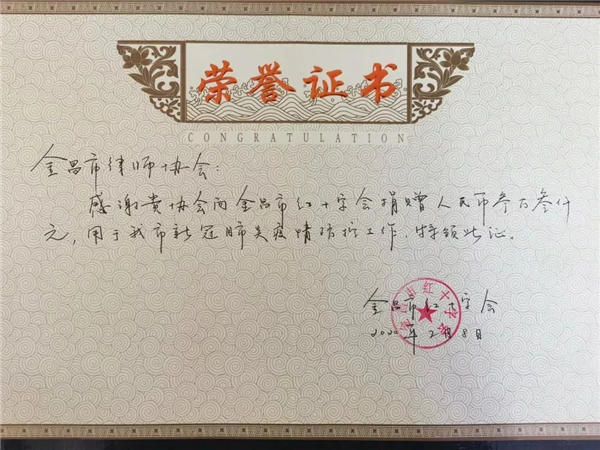 荣誉证书
CONGRATULATION
金昌市律师协会：
感谢贵协会向金昌市红十字会捐赠人民币叁万叁仟
元，用于我市新冠肺炎疫情防控工作，特颁此证。
金昌市红十字会
2020年2月8日
金昌市红十字会